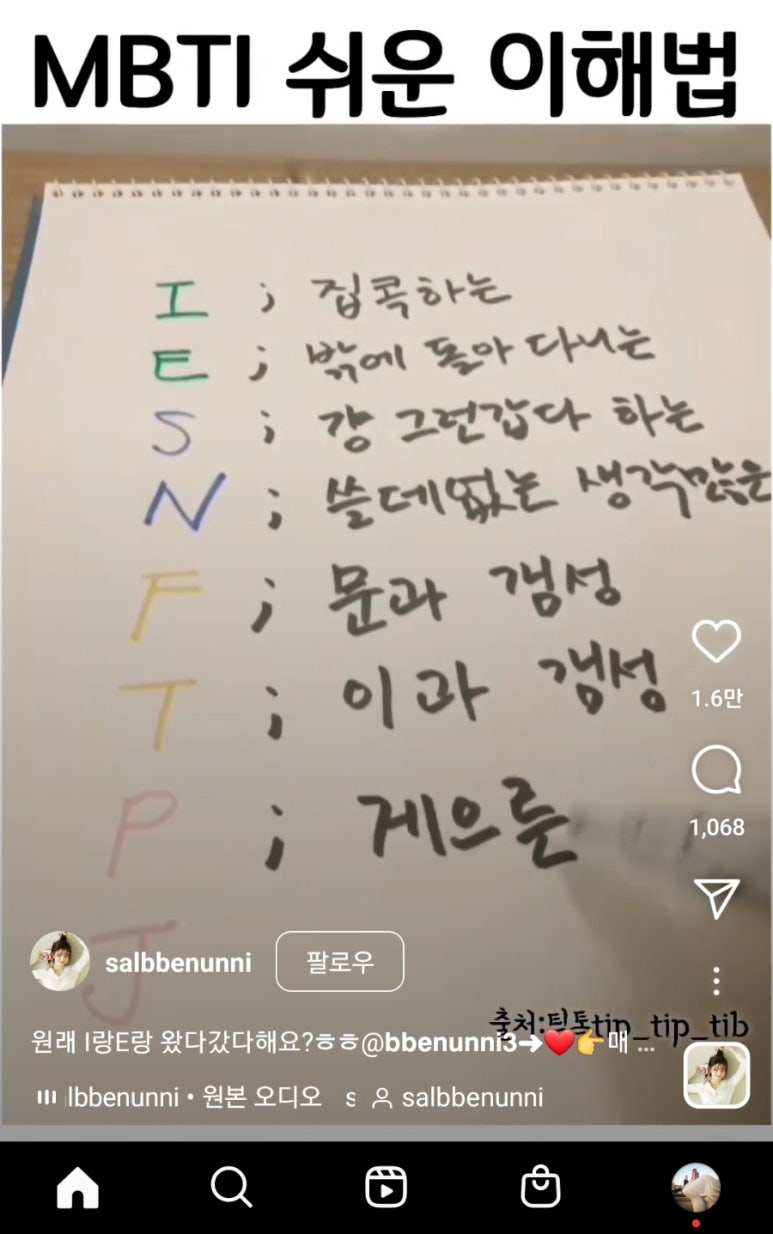 MBTI 쉬운 이해법
I ; 집콕하는
E ; 밖에 돌아 다니는
S ; 걍 그런갑다 하는
N ; 쓸데없는 생각많은
F ; 문과 갬성
T ; 이과 갬성
P ; 게으른
J
1.6만
1,068
salbbenunni 팔로우
출처:틱톡tip_tip_tib
원래 I랑E랑 왔다갔다해요?ㅎㅎ@bbenunni3➔❤️👉매 ...
lbbenunni • 원본 오디오 s salbbenunni